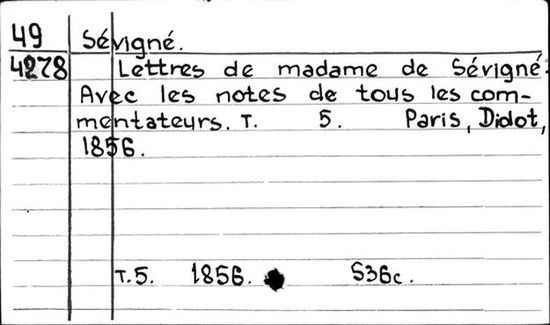 49 Sévigné.
4278 Lettres de madame de Sévigné.
Avec les notes de tous les com-
mentateurs. T. 5. Paris, Didot,
1856.
T.5. 1856. 536c.